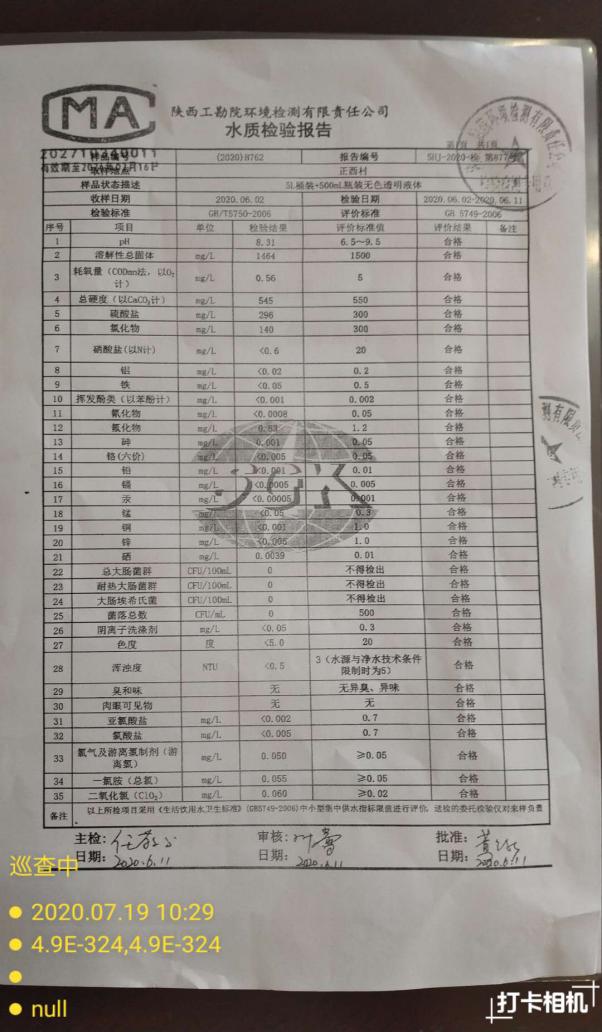 MA
陕西工勘院环境检测有限责任公司
水质检验报告
202719340011
有效期至2026年02月16日
第1页 共1页
样品编号 (2020)8762 报告编号 SHJ-2020-检 第877号
取样地点 正西村
样品状态描述 5L桶装+500mL瓶装无色透明液体
收样日期 2020.06.02 检验日期 2020.06.02-2020.06.11
检验标准 GB/T5750-2006 评价标准 GB 5749-2006
序号 项目 单位 检验结果 评价标准值 评价结果 备注
1 pH 8.31 6.5~9.5 合格
2 溶解性总固体 mg/L 1464 1500 合格
3 耗氧量(CODmn法,以O₂计) mg/L 0.56 5 合格
4 总硬度(以CaCO₃计) mg/L 545 550 合格
5 硫酸盐 mg/L 296 300 合格
6 氯化物 mg/L 140 300 合格
7 硝酸盐(以N计) mg/L <0.6 20 合格
8 铝 mg/L <0.02 0.2 合格
9 铁 mg/L <0.05 0.5 合格
10 挥发酚类(以苯酚计) mg/L <0.001 0.002 合格
11 氰化物 mg/L <0.0008 0.05 合格
12 氟化物 mg/L 0.83 1.2 合格
13 砷 mg/L 0.001 0.05 合格
14 铬(六价) mg/L <0.005 0.05 合格
15 铅 mg/L <0.001 0.01 合格
16 镉 mg/L <0.0005 0.005 合格
17 汞 mg/L <0.00005 0.001 合格
18 锰 mg/L <0.05 0.3 合格
19 铜 mg/L <0.001 1.0 合格
20 锌 mg/L <0.005 1.0 合格
21 硒 mg/L 0.0039 0.01 合格
22 总大肠菌群 CFU/100mL 0 不得检出 合格
23 耐热大肠菌群 CFU/100mL 0 不得检出 合格
24 大肠埃希氏菌 CFU/100mL 0 不得检出 合格
25 菌落总数 CFU/mL 0 500 合格
26 阴离子洗涤剂 mg/L <0.05 0.3 合格
27 色度 度 <5.0 20 合格
28 浑浊度 NTU <0.5 3(水源与净水技术条件限制时为5) 合格
29 臭和味 无 无异臭、异味 合格
30 肉眼可见物 无 无 合格
31 亚氯酸盐 mg/L <0.002 0.7 合格
32 氯酸盐 mg/L <0.005 0.7 合格
33 氯气及游离氯制剂(游离氯) mg/L 0.050 ≥0.05 合格
34 一氯胺(总氯) mg/L 0.055 ≥0.05 合格
35 二氧化氯(ClO₂) mg/L 0.060 ≥0.02 合格
备注 以上所检项目采用《生活饮用水卫生标准》(GB5749-2006)中小型集中供水指标限值进行评价,送检的委托检验仅对来样负责。
主检: 审核: 批准:
日期:2020.6.11 日期:2020.6.11 日期:2020.6.11
巡查中
2020.07.19 10:29
4.9E-324,4.9E-324
null
打卡相机